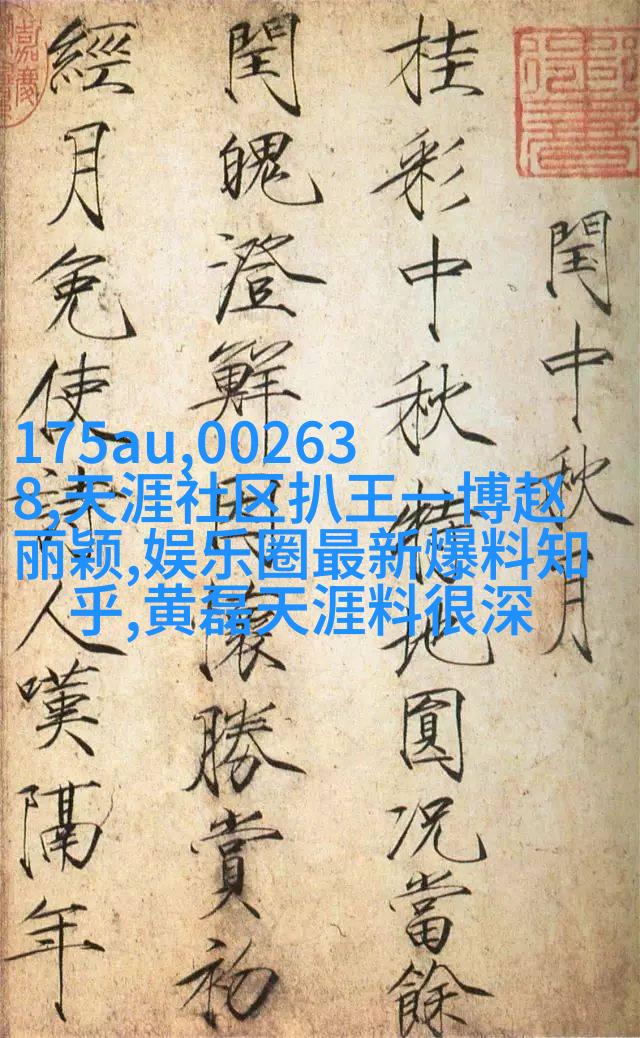 閏中秋月
桂彩中秋特地圓況當餘
閏魄澄鮮因懷勝賞初
經月免使詩人嘆隔年
175au,00263
8,天涯社区扒王一博赵
丽颖,娱乐圈最新爆料知
乎,黄磊天涯料很深